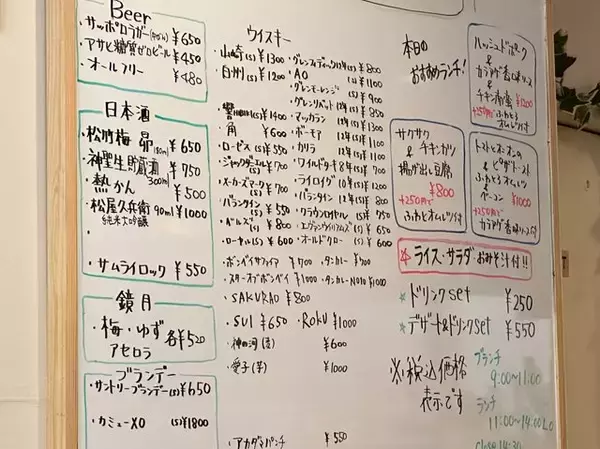 Beer
・サッポロラガー(中びん) ¥650
・アサヒ糖質ゼロビール ¥450
・オールフリー ¥480
日本酒
・松竹梅 昴 180ml ¥650
・神聖生貯蔵酒 300ml ¥750
・熱かん ¥500
・松屋久兵衛 90ml ¥1000
純米大吟醸
・サムライロック ¥550
鏡月
・梅・ゆず 各¥520
アセロラ
ブランデー
・サントリーブランデー(S) ¥650
・カミューXO (S) ¥1800
ウイスキー
・山崎(S) ¥1300
・白州(S) ¥1200
・響 (S) ¥1400
・角 ¥600
・ロービス(S) ¥550
・ジャックダニエル(S) ¥700
・メーカーズマーク(S) ¥700
・バランタイン(S) ¥550
・ベルズ(S) ¥600
・ローヤル(S) ¥600
・グレンフィディック12年(S) ¥800
・AO (S) ¥1100
・グレンモーレンジ (S) ¥900
・グレンリベット 12年(S) ¥850
・マッカラン 12年(S) ¥1300
・ボーモア 12年(S) ¥1100
・カリラ 12年(S) ¥1100
・ワイルドターキー 8年(S) ¥700
・ラフロイグ 10年(S) ¥1200
・バランタイン 12年(S) ¥800
・クラウンロイヤル (S) ¥750
・エヴァンウィリアムス(S) ¥650
・オールドクロー (S) ¥600
・ボンベイサファイア ¥700 ・タンカレー ¥700
・スターオブボンベイ ¥1000 ・タンカレーNo10 ¥1000
・SAKURAO ¥800
・SUI ¥650 ・ROKU ¥1000
・神の河(麦) ¥600
・愛子(芋) ¥1000
・アカダマパンチ ¥550
本日の
おすすめランチ!
ハッシュドポーク
&
カラアゲ香味ソース
&
チキン南蛮 ¥1200
+250円でふわとろオムレツ付
サクサク
&チキンカツ
揚げ出し豆腐
¥800
+250円で
ふわとろオムレツ付
&ピザトースト
ふわとろオムレツ
&ベーコン ¥1000
+250円で
☆ライス・サラダ・おみそ汁付!!
☆ドリンクset ¥250
☆デザート&ドリンクset ¥550
※税込価格
表示です
ブランチ
9:00〜11:00
ランチ
11:00〜14:00 L.O
close 14:30